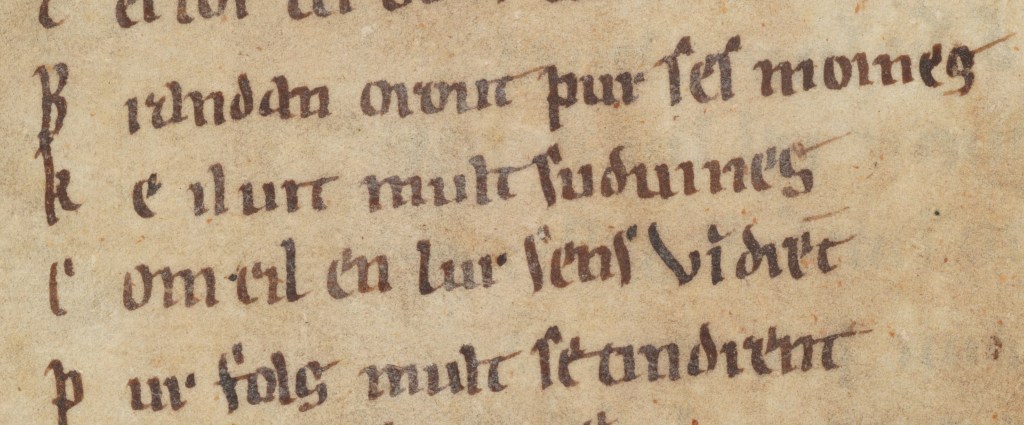 B randan orout pur ses moines
K e il unt mult suduines
C om cil en lur sens vidrēt
P ur fols mult se tindrent